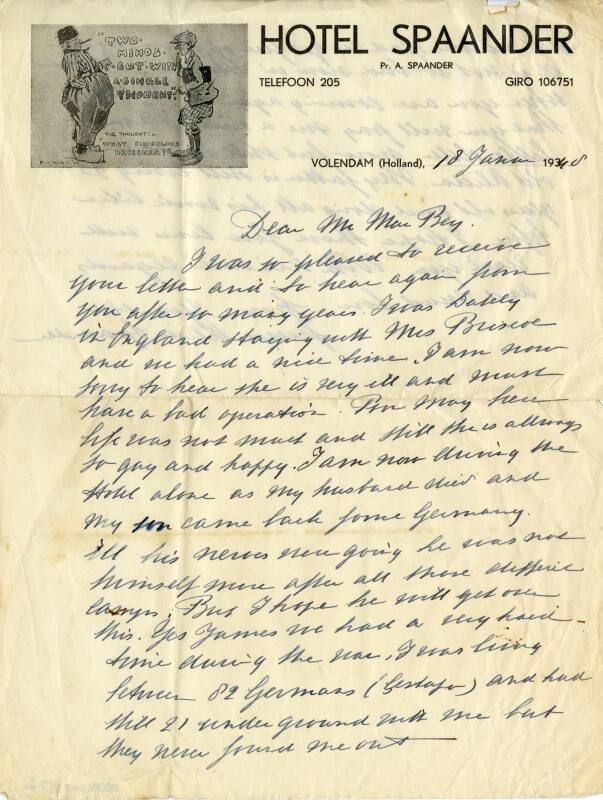 "TWO
MINDS
BUT WITH
A SINGLE
THOUGHT."
THE THOUGHT:-
"WHAT RIDICULOUS
BREECHES"!
HOTEL SPAANDER
Pr. A. SPAANDER
TELEFOON 205 GIRO 106751
VOLENDAM (Holland), 18 Januar 1948
Dear Mr Mac Bey.
I was so pleased to receive
your letter and to hear again from
you after so many years. I was Lately
in England staying with Mrs Briscoe
and we had a nice time. I am now
sorry to hear she is very ill and must
have a bad operation. Poor May here
life was not much and still she is allways
so gay and happy. I am now driving the
Hotel alone as my husband died and
my son came back fome Germany.
All his nerves were going he was not
himself more after all those differie
camps. But I hope he will get over
this. Yes James we had a very hard
time during the war, I was living
between 82 Germans (Gestapo) and had
still 21 under ground with me but
they never found me out